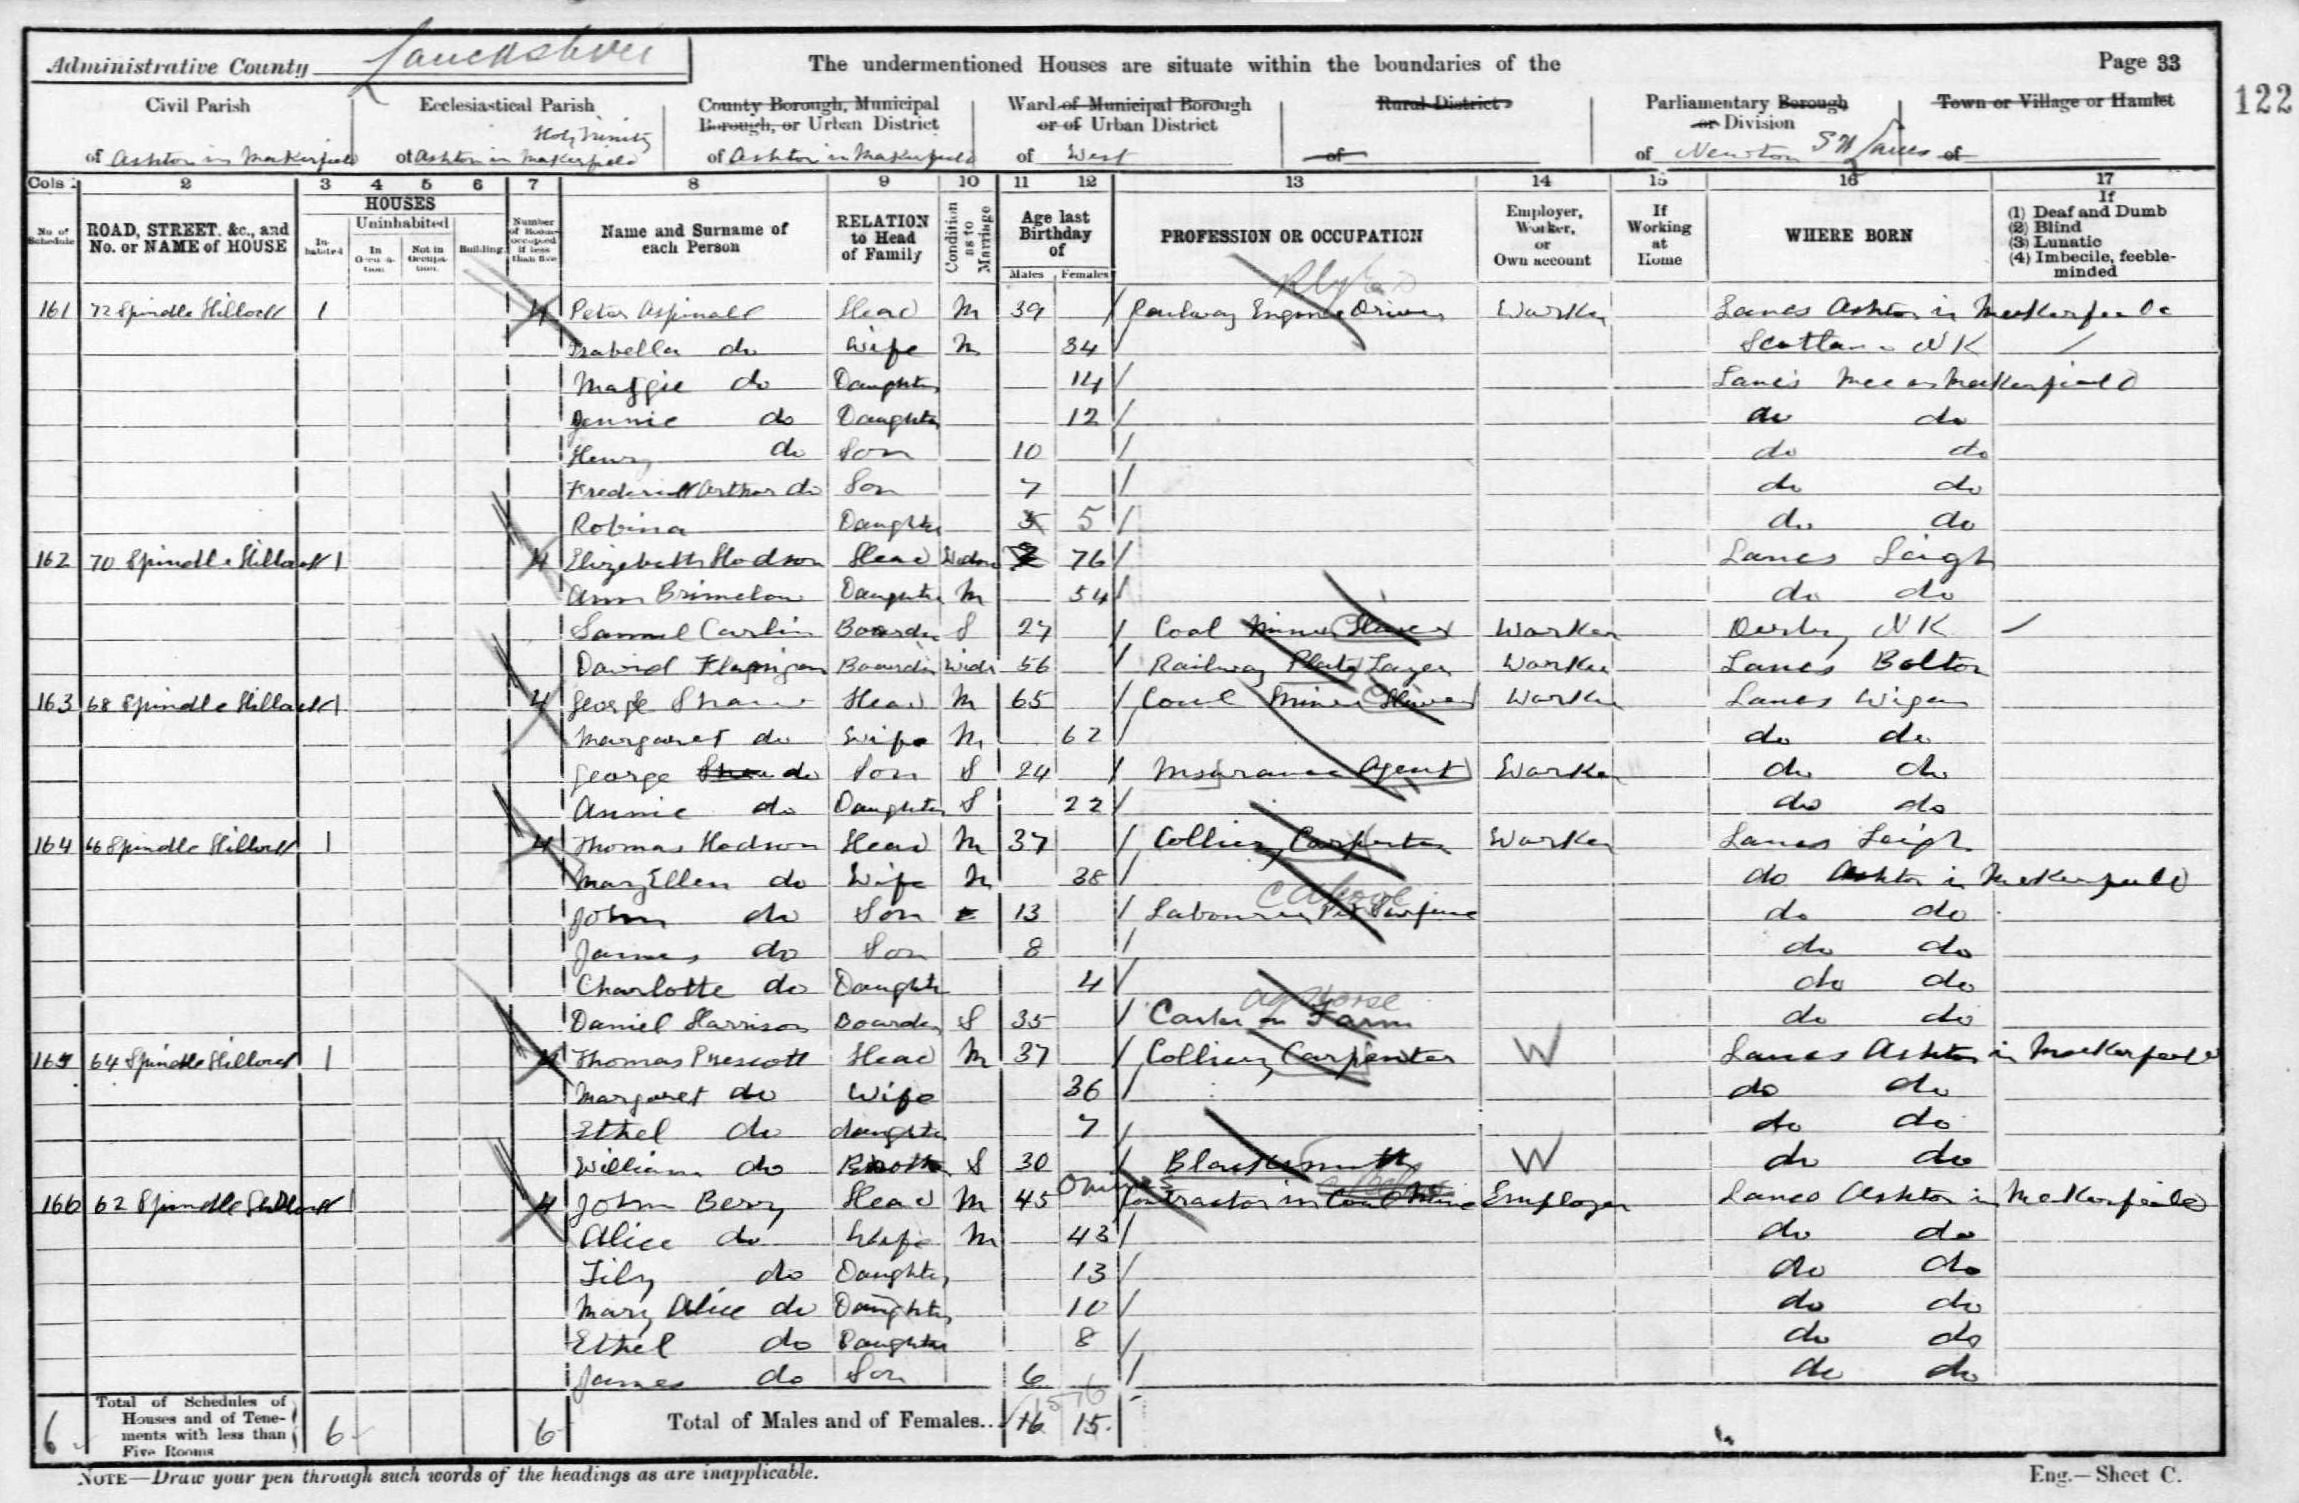 Administrative County Lancashire
The undermentioned Houses are situate within the boundaries of the
Page 33
122
Civil Parish
of Ashton in Makerfield
Ecclesiastical Parish
Holy Trinity
of Ashton in Makerfield
County Borough, Municipal
Borough, or Urban District
of Ashton in Makerfield
Ward of Municipal Borough
or of Urban District
of West
Rural District
of
Parliamentary Borough
or Division
of Newton S W Lancs
Town or Village or Hamlet
of
Cols 1 2 3 4 5 6 7 8 9 10 11 12 13 14 15 16 17
No. of Schedule
ROAD, STREET, &c., and No. or NAME of HOUSE
HOUSES
Inhabited
Uninhabited
In Occupation
Not in Occupation
Building
Number of Rooms occupied if less than five
Name and Surname of each Person
RELATION to Head of Family
Condition as to Marriage
Age last Birthday of
Males Females
PROFESSION OR OCCUPATION
Employer, Worker, or Own account
If Working at Home
WHERE BORN
If
(1) Deaf and Dumb
(2) Blind
(3) Lunatic
(4) Imbecile, feeble-minded
161 72 Spindle Hillock 1 4 Peter Aspinall Head M 39 Railway Engine Driver Worker Lancs Ashton in Makerfield
Isabella do Wife M 34 Scotland NK
Maggie do Daughter 14 Lancs in Makerfield
Jennie do Daughter 12 do do
Henry do Son 10 do do
Frederick Arthur do Son 7 do do
Robina Daughter 5 do do
162 70 Spindle Hillock 1 4 Elizabeth Hodson Head Widow 76 Lancs Leigh
Ann Brimelow Daughter M 54 do do
Samuel Carlin Boarder S 27 Coal Miner Hewer Worker Derby NK
David Flannigan Boarder Widr 56 Railway Plate Layer Worker Lancs Bolton
163 68 Spindle Hillock 1 4 George Shaw Head M 65 Coal Miner Hewer Worker Lancs Wigan
Margaret do Wife M 62 do do
George Shaw do Son S 24 Insurance Agent Worker do do
Annie do Daughter S 22 do do
164 66 Spindle Hillock 1 4 Thomas Hodson Head M 37 Colliery Carpenter Worker Lancs Leigh
Mary Ellen do Wife M 38 do Ashton in Makerfield
John do Son 13 Labourer Pit Surface do do
James do Son 8 do do
Charlotte do Daughter 4 do do
Daniel Harrison Boarder S 35 Carter on Farm do do
165 64 Spindle Hillock 1 4 Thomas Prescott Head M 37 Colliery Carpenter W Lancs Ashton in Makerfield
Margaret do Wife 36 do do
Ethel do daughter 7 do do
William do Brother S 30 Blacksmith W do do
166 62 Spindle Hillock 1 4 John Berry Head M 45 Contractor in Coal Mine Employer Lancs Ashton in Makerfield
Alice do Wife M 43 do do
Lily do Daughter 13 do do
Mary Alice do Daughter 10 do do
Ethel do Daughter 8 do do
James do Son 6 do do
6 Total of Schedules of Houses and of Tenements with less than Five Rooms 6 6 Total of Males and of Females... 16 15
15 16
NOTE—Draw your pen through such words of the headings as are inapplicable.
Eng.—Sheet C.